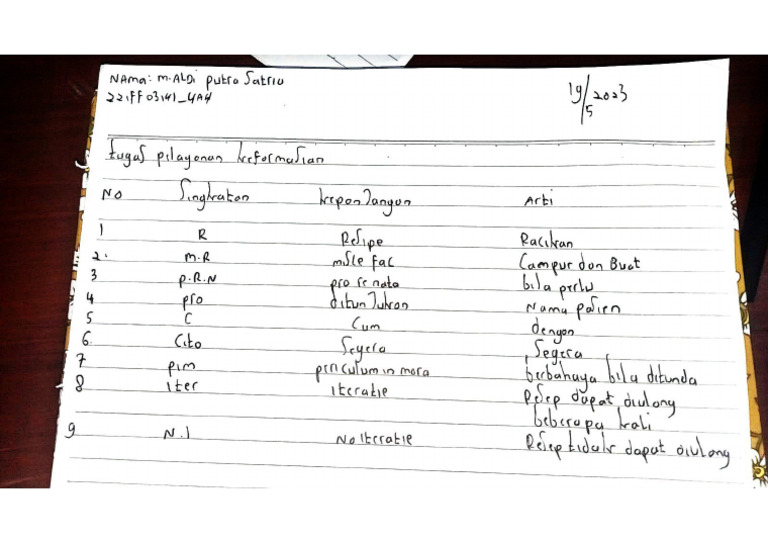 NAma: M.ALDi putra Satrio
221FF03141_4A4
19/5/2023
tugas pelayanan kefarmasian
NO Singkatan kepanjangan Arti
1 R Resipe Racikan
2. m.R misce fac Campur dan Buat
3 p.R.N pro re nata bila perlu
4 pro ditunjukan Nama pasien
5 C Cum dengan
6 Cito Segera Segera
7 pim periculum in mora berbahaya bila ditunda
8 iter iteratie Resep dapat diulang
beberapa kali
9 N.I No iteratie Resep tidak dapat diulang